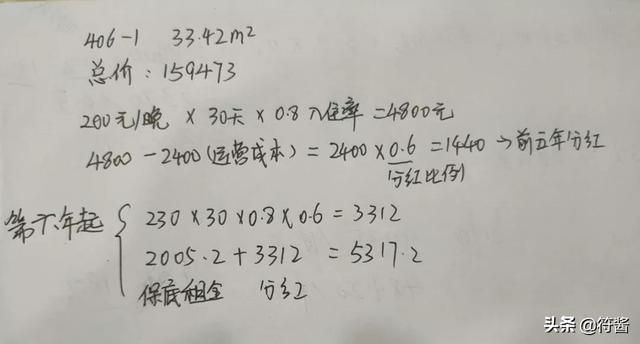 406-1 33.42m²
总价：159473
200元/晚 × 30天 × 0.8入住率 = 4800元
4800 - 2400(运营成本) = 2400 × 0.6 = 1440 → 前五年分红
分红比例
第六年起 { 230 × 30 × 0.8 × 0.6 = 3312
2005.2 + 3312 = 5317.2
保底租金 分红
头条 @符酱